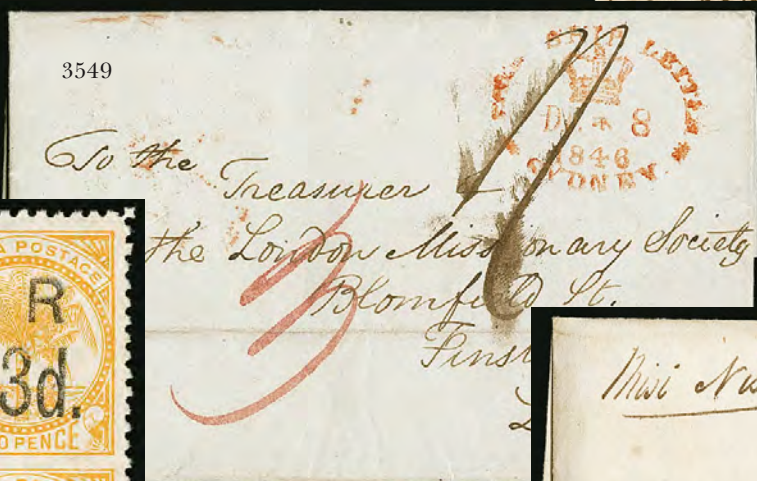 3549
SHIP LETTER
DE * 8
1846
SYDNEY
To the
Treasurer
the London Missionary Society
Blomfield St.
Fins
3
A POSTAGE
R
3d.
O PENCE